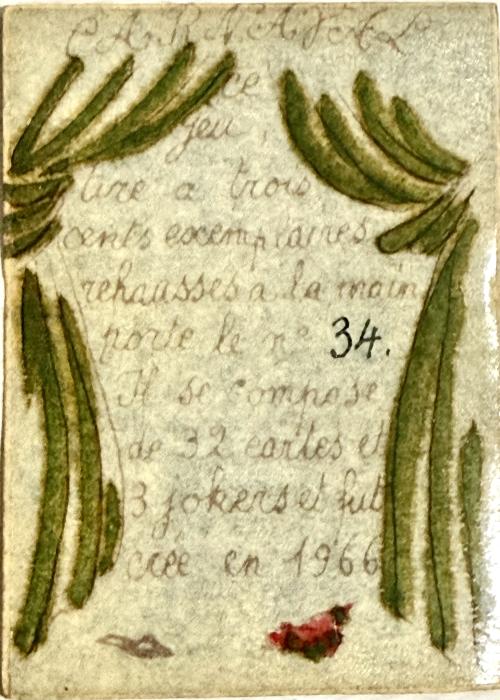 CARNAVAL
ce
jeu,
tiré a trois
cents exemplaires
rehaussés a la main
porte le n° 34.
Il se compose
de 32 cartes et
3 jokers et fut
créé en 1966